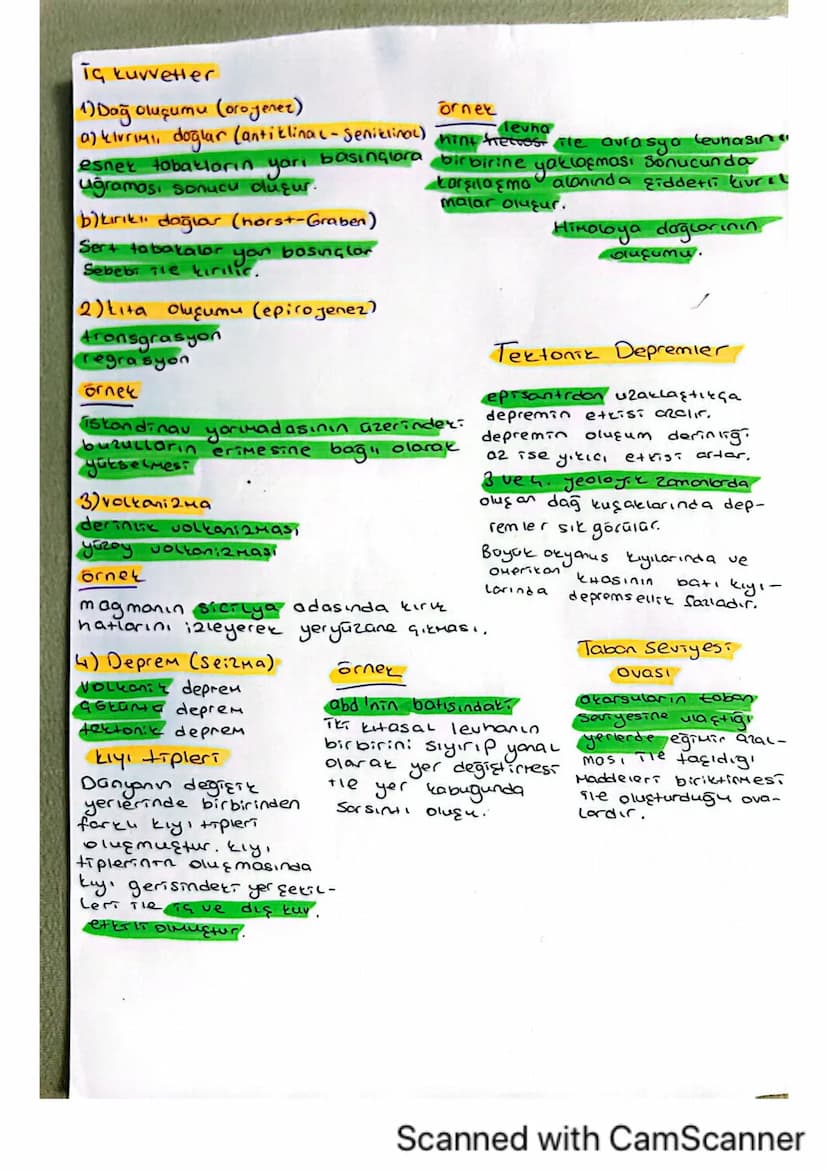 İç kuvvetler
1) Dağ oluşumu (orojenez)
a) kıvrımlı dağlar (antiklinal-Seniklinal)
esnek tabakların yan basınçlara
uğraması sonucu oluşur.
b) kırıklı dağlar (horst-Graben)
Sert tabakalar yan basınçlar
Sebebi ile kırılır.
2) kıta oluşumu (epirojenez)
transgrasyon
regrasyon
örnek
iskandinav yarımadasının üzerindeki
buzulların erimesine bağlı olarak
yükselmesi
3) volkanizma
derinlik volkanizması
yüzey volkanizması
örnek
magmanın sicilya adasında kırık
hatlarını izleyerek yeryüzüne çıkması.
4) Deprem (Seizma)
volkanik deprem
çöküntü deprem
tektonik deprem
kıyı tipleri
Dünyanın değişik
yerlerinde birbirinden
farklı kıyı tipleri
oluşmuştur. kıyı
tiplerinin oluşmasında
kıyı gerisindeki yer şekil-
leri ile iç ve dış kuv.
etkili olmuştur.
örnek
levha
hint ile avrasya levhasın
birbirine yaklaşması sonucunda
karşılaşma alanında şiddetli kıvrıl
malar oluşur.
Himalaya dağlarının
oluşumu.
Tektonik Depremler
episantrdan uzaklaştıkça
depremin etkisi azalır.
depremin oluşum derinliği
az ise yıkıcı etkisi artar.
3 ve 4. jeolojik zamanlarda
oluşan dağ kuşaklarında dep-
remler sık görülür.
Büyük okyanus kıyılarında ve
amerikan kıtasının batı kıyı-
larında depremsellik fazladır.
örnek
abd'nin batısındaki
iki kıtasal levhanın
birbirini sıyırıp yanal
olarak yer değiştirmesi
ile yer kabuğunda
sarsıntı oluşu.
Taban seviyesi
ovası
akarsuların taban
seviyesine ulaştığı
yerlerde eğimin azal-
ması ile taşıdığı
maddeleri biriktirmesi
ile oluşturduğu ova-
lardır.
Scanned with CamScanner